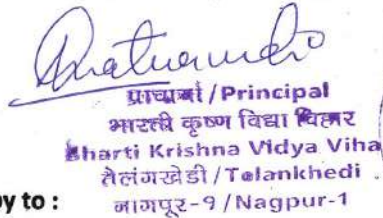 प्राचार्या/Principal
भारती कृष्ण विद्या विहार
Bharti Krishna Vidya Viha
तेलंगखेडी/Telankhedi
py to :
नागपूर-१/Nagpur-1